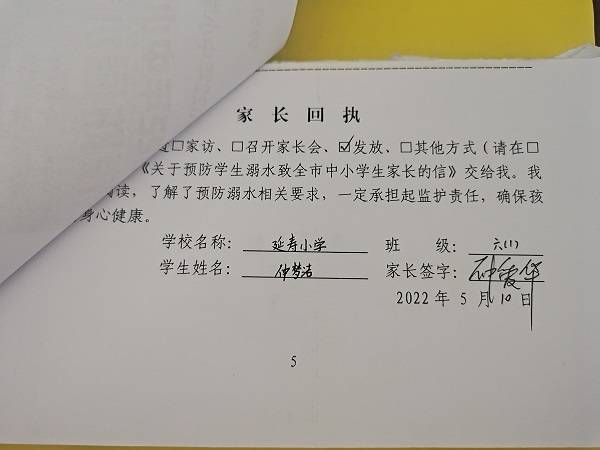 家长回执
□家访、□召开家长会、☑发放、□其他方式(请在□
《关于预防学生溺水致全市中小学生家长的信》交给我。我
阅读,了解了预防溺水相关要求,一定承担起监护责任,确保孩
身心健康。
学校名称: 延寿小学 班 级: 六(1)
学生姓名: 仲梦洁 家长签字: 仲爱华
2022 年 5 月 10 日
5